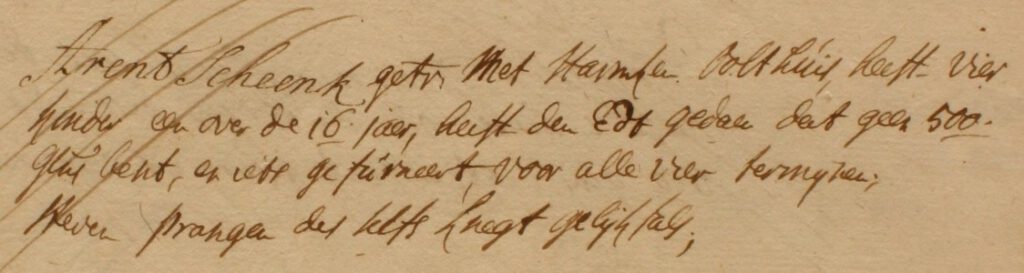 Arent Scheenk getr. Met Harmken Volthuis heeft vier
kinder een over de 16 jaer, heeft den Edt gedaen dat geen 500.
gls besit, en iets gefurneert, voor alle vier termijnen,
Steven Prangen des selfs knegt gelijkfals,